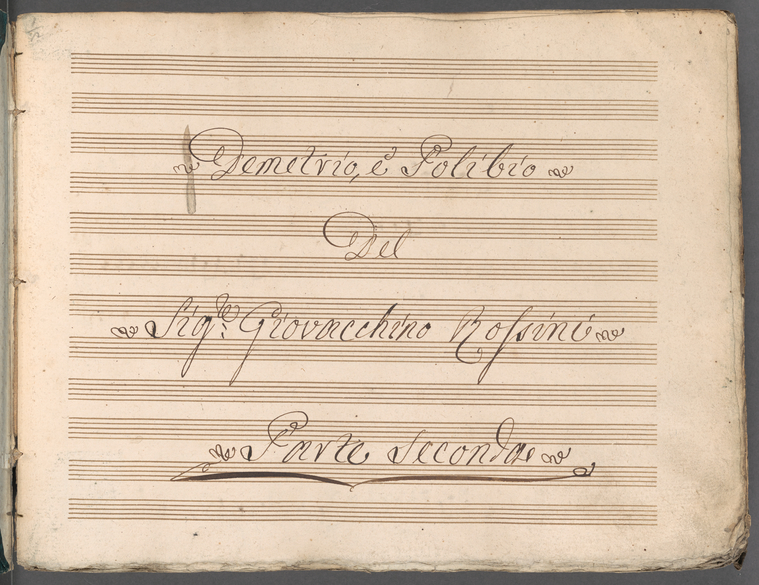 Demetrio, è Polibio
Del
Sig.re Giovacchino Rossini
Parte Seconda